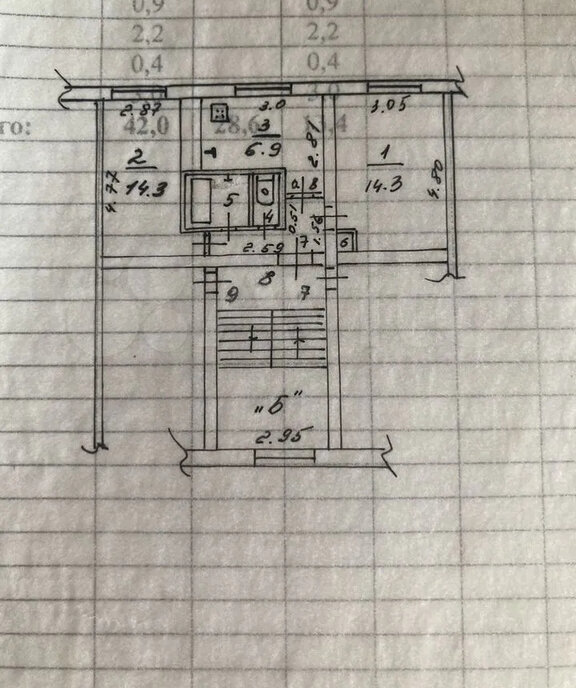 0,9 0,9
2,2 2,2
0,4 0,4
3,0
го: 42,0 28,6
2.87 3.0 3.05
3
6.9
2.81
2
14.3
4.77
1
14.3
4.80
5
4
0.51
1.56
2.59
7
6
8
9 7
"Б"
2.95